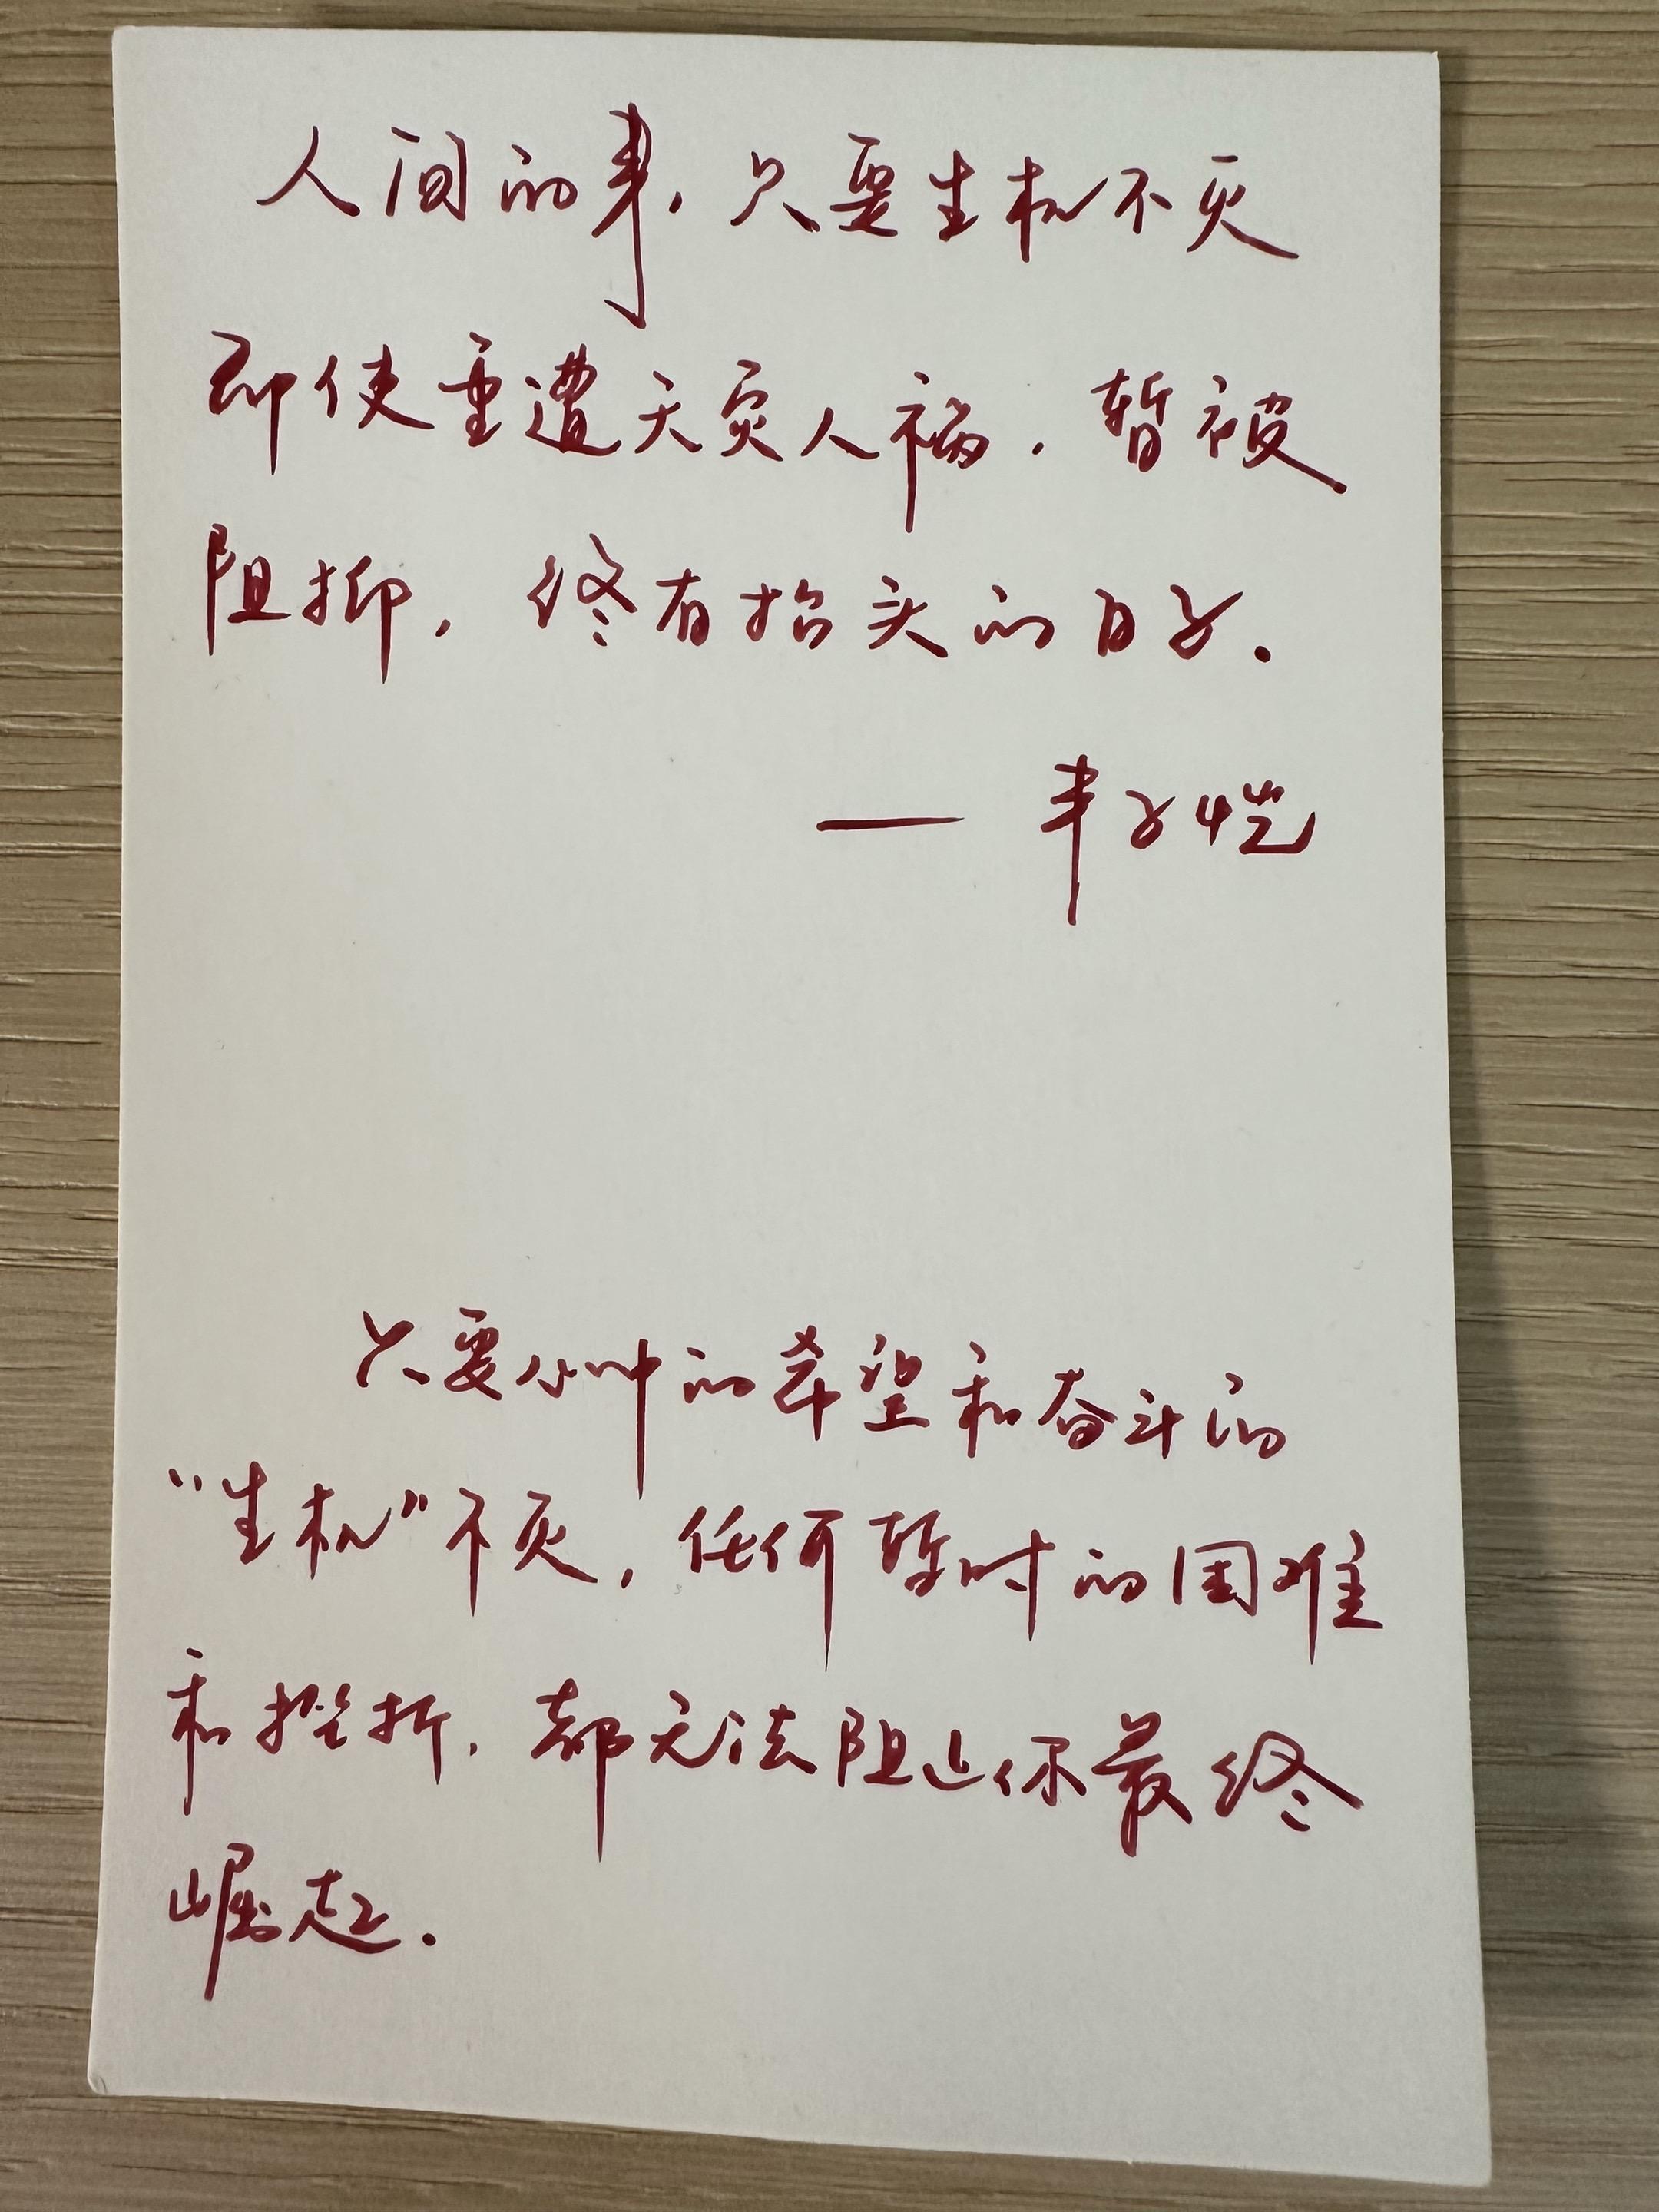 人间的事，只要生机不灭
即使重遭天灾人祸，暂被
阻抑，终有抬头的日子。
—— 丰子恺
只要心中的希望和奋斗的
“生机”不灭，任何暂时的困难
和挫折，都无法阻止你最终
崛起。